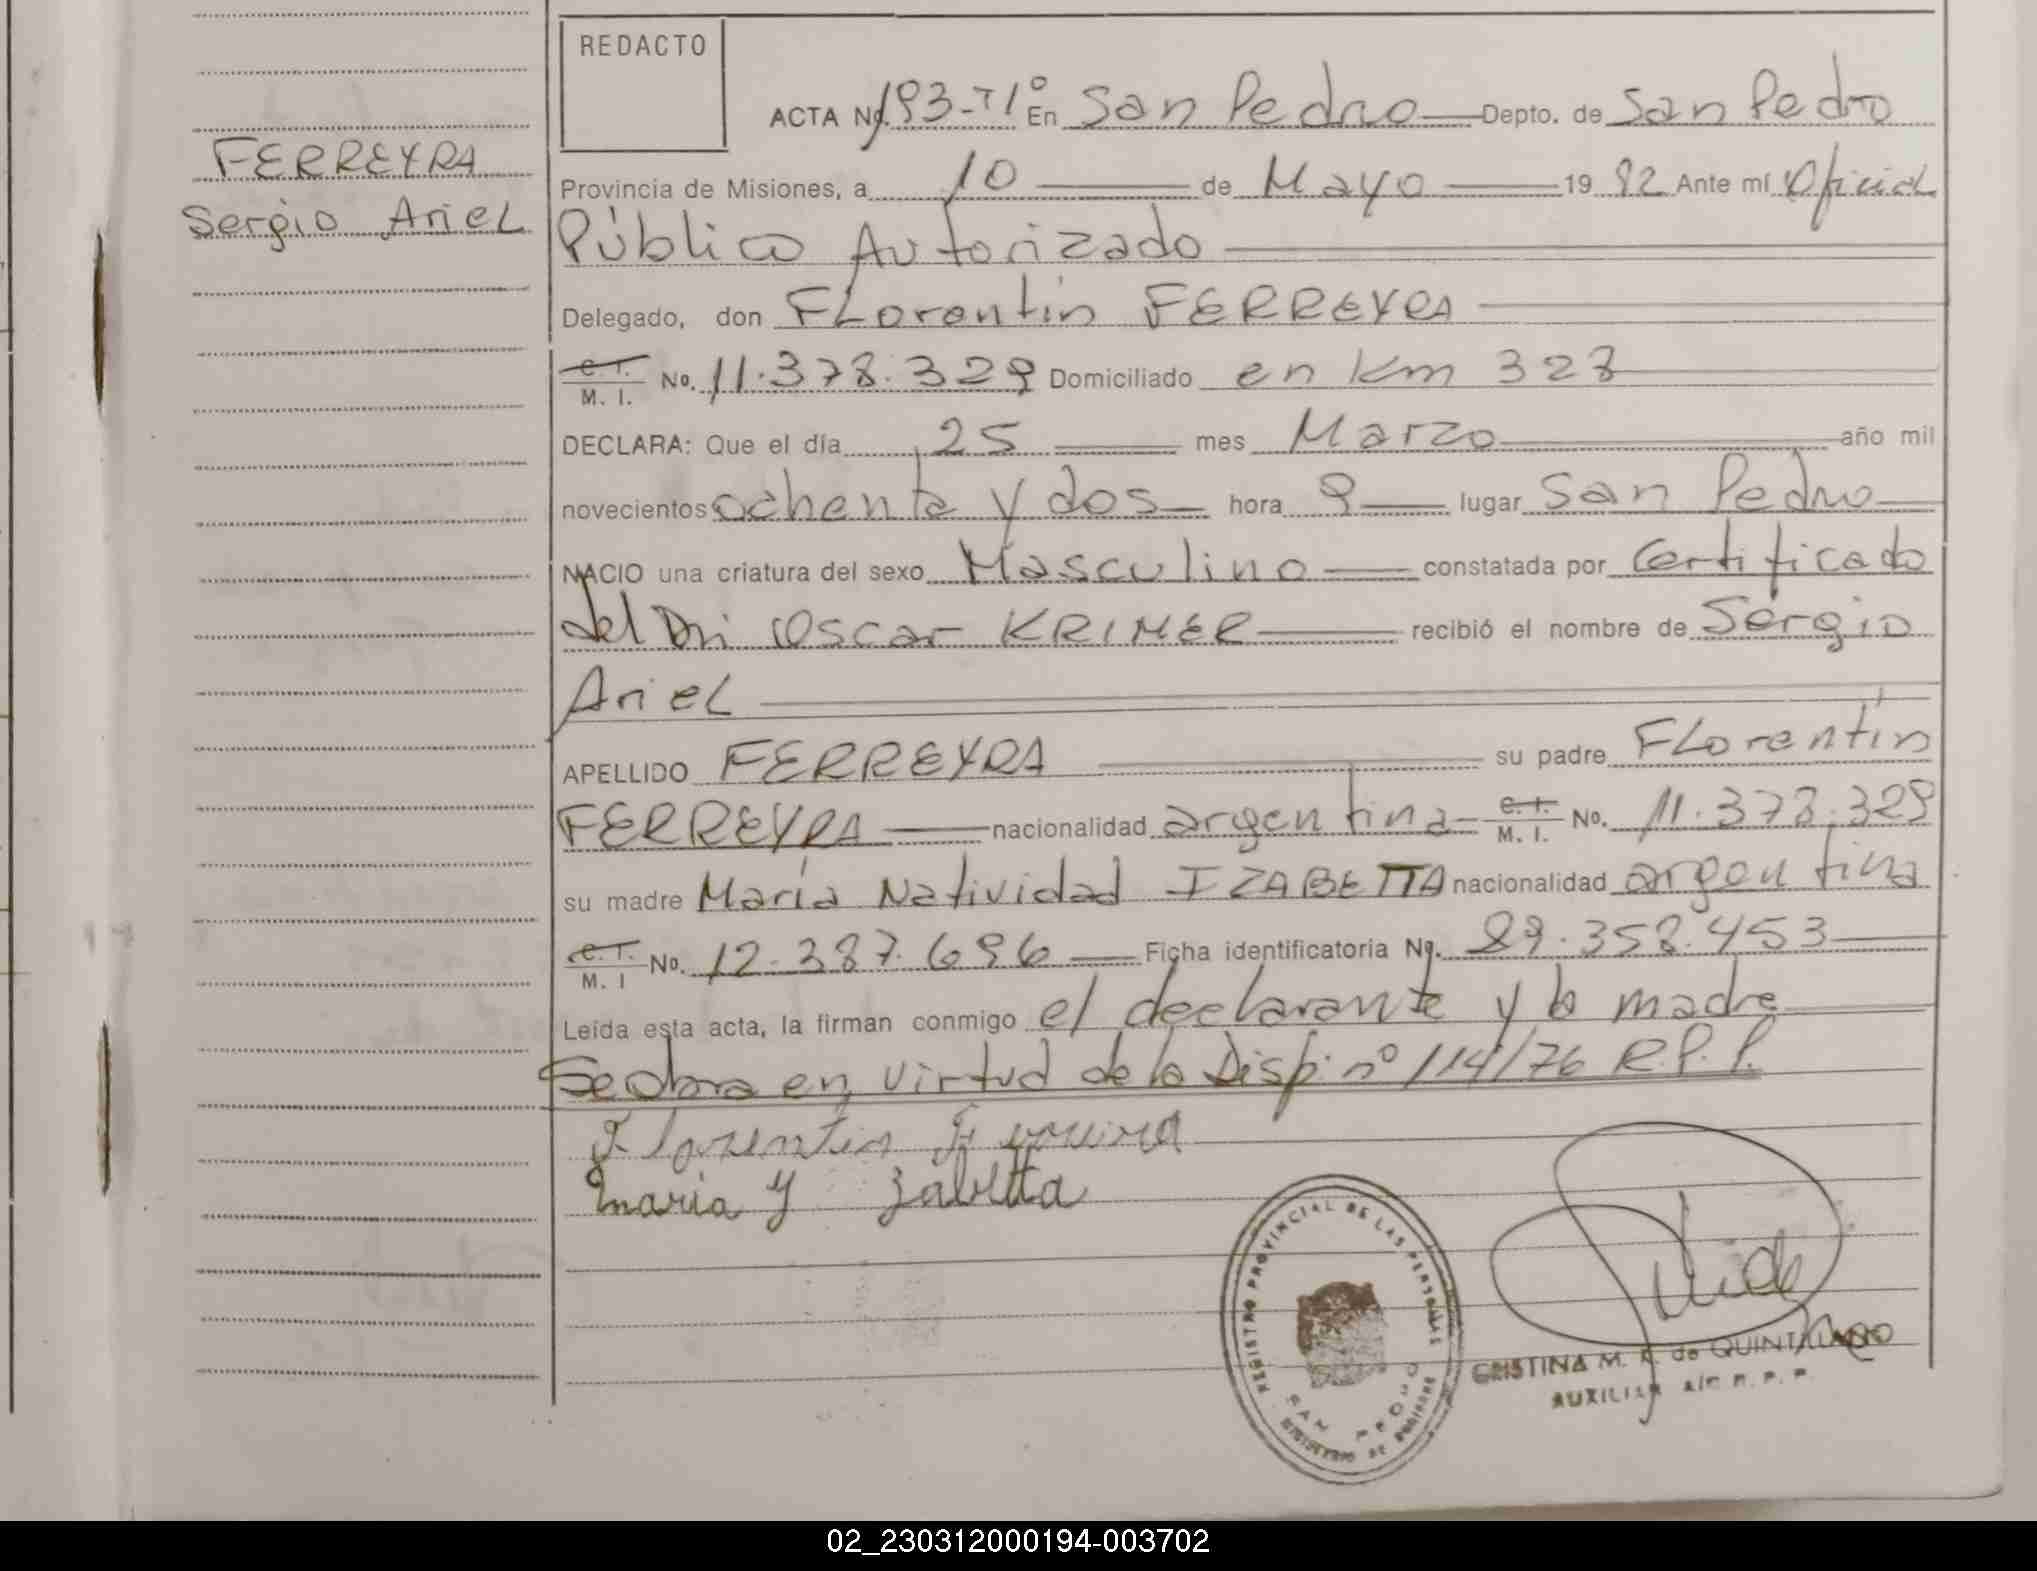 REDACTO
ACTA No. 193-T1º En San Pedro Depto. de San Pedro
FERREYRA
Sergio Ariel
Provincia de Misiones, a 10 de Mayo 1982 Ante mí Oficial
Público Autorizado
Delegado, don Florentín FERREYRA
C. I.
M. I. No. 11.378.329 Domiciliado en Km 328
DECLARA: Que el día 25 mes Marzo año mil
novecientos ochenta y dos hora 9 lugar San Pedro
NACIO una criatura del sexo Masculino constatada por Certificado
del Dr. Oscar KRIMER recibió el nombre de Sergio
Ariel
APELLIDO FERREYRA su padre Florentín
FERREYRA nacionalidad argentina C. I.
M. I. No. 11.378.329
su madre María Natividad IZABETTA nacionalidad argentina
C. I.
M. I No. 12.387.696 Ficha identificatoria No. 29.358.453
Leída esta acta, la firman conmigo el declarante y la madre
Se obra en virtud de la Disp. nº 114/76 R.P.P.
Florentin Ferreira
maria y zabetta
REGISTRO PROVINCIAL DE LAS PERSONAS
SAN PEDRO
MINISTERIO DE GOBIERNO
CRISTINA M. R. de QUINTANA
AUXILIAR A/C R. P. P.
02_230312000194-003702